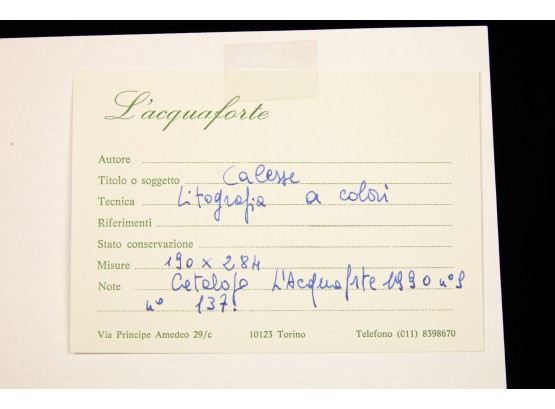 L'acquaforte
Autore
Titolo o soggetto Calesse
Tecnica Litografia a colori
Riferimenti
Stato conservazione
Misure 190 x 284
Note Catalogo L'Acquaforte 1990 n° 9
n° 137!
Via Principe Amedeo 29/c 10123 Torino Telefono (011) 8398670